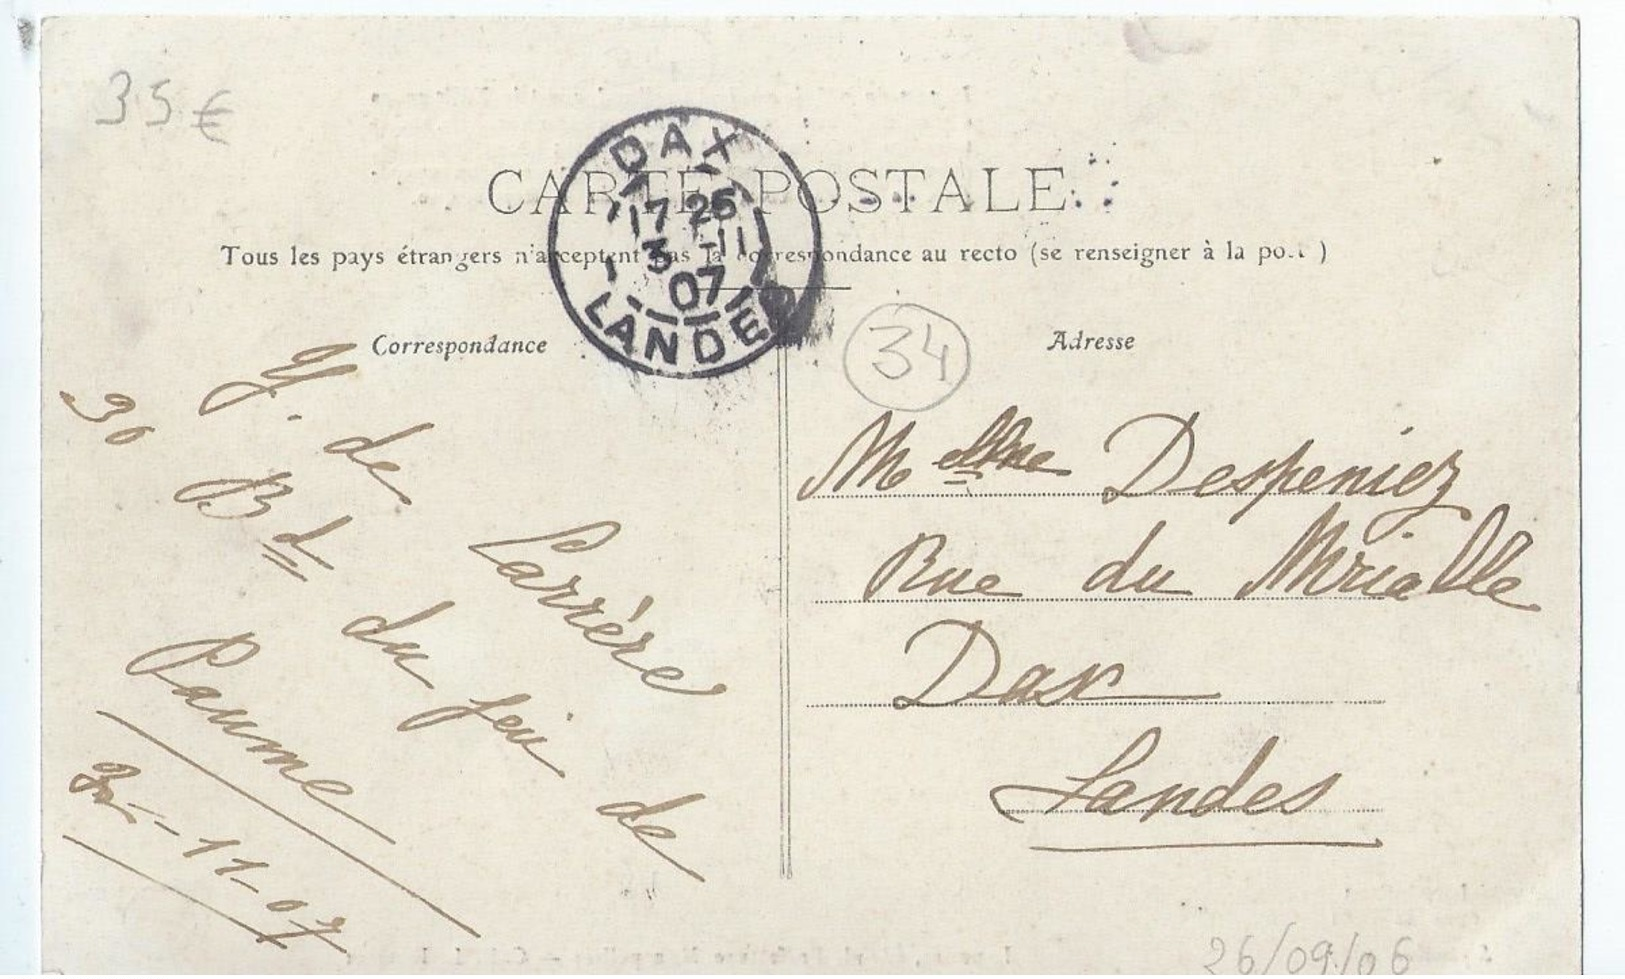 35 €
CARTE POSTALE
Tous les pays étrangers n'acceptent pas la correspondance au recto (se renseigner à la poste)
DAX
17 25
3 -11
07
LANDES
Correspondance
Y. de Larrère
30 Bd du jeu de
Paume
-11-07
34
Adresse
Despeniez
Rue du Mirailh
Dax
Landes
26/09/06